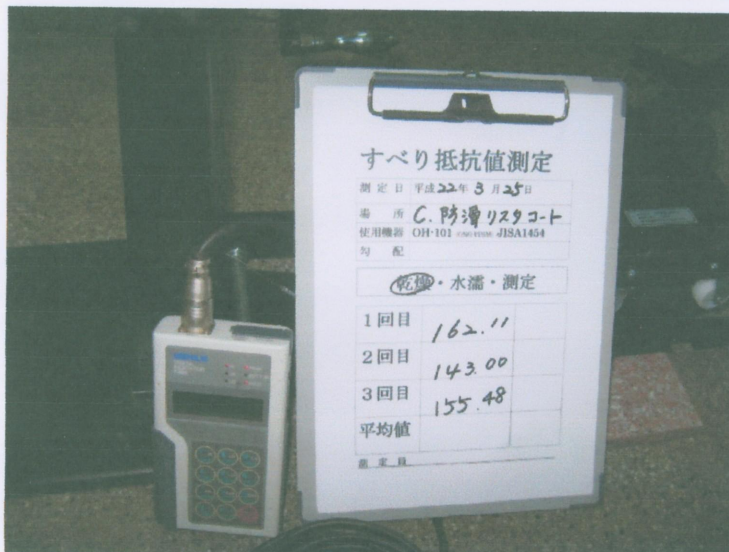 すべり抵抗値測定
測定日 平成22年3月25日
場所 C.防滑リスタコート
使用機器 OH-101 JISA1454
勾配
乾燥・水濡・測定
1回目 162.11
2回目 143.00
3回目 155.48
平均値
測定員